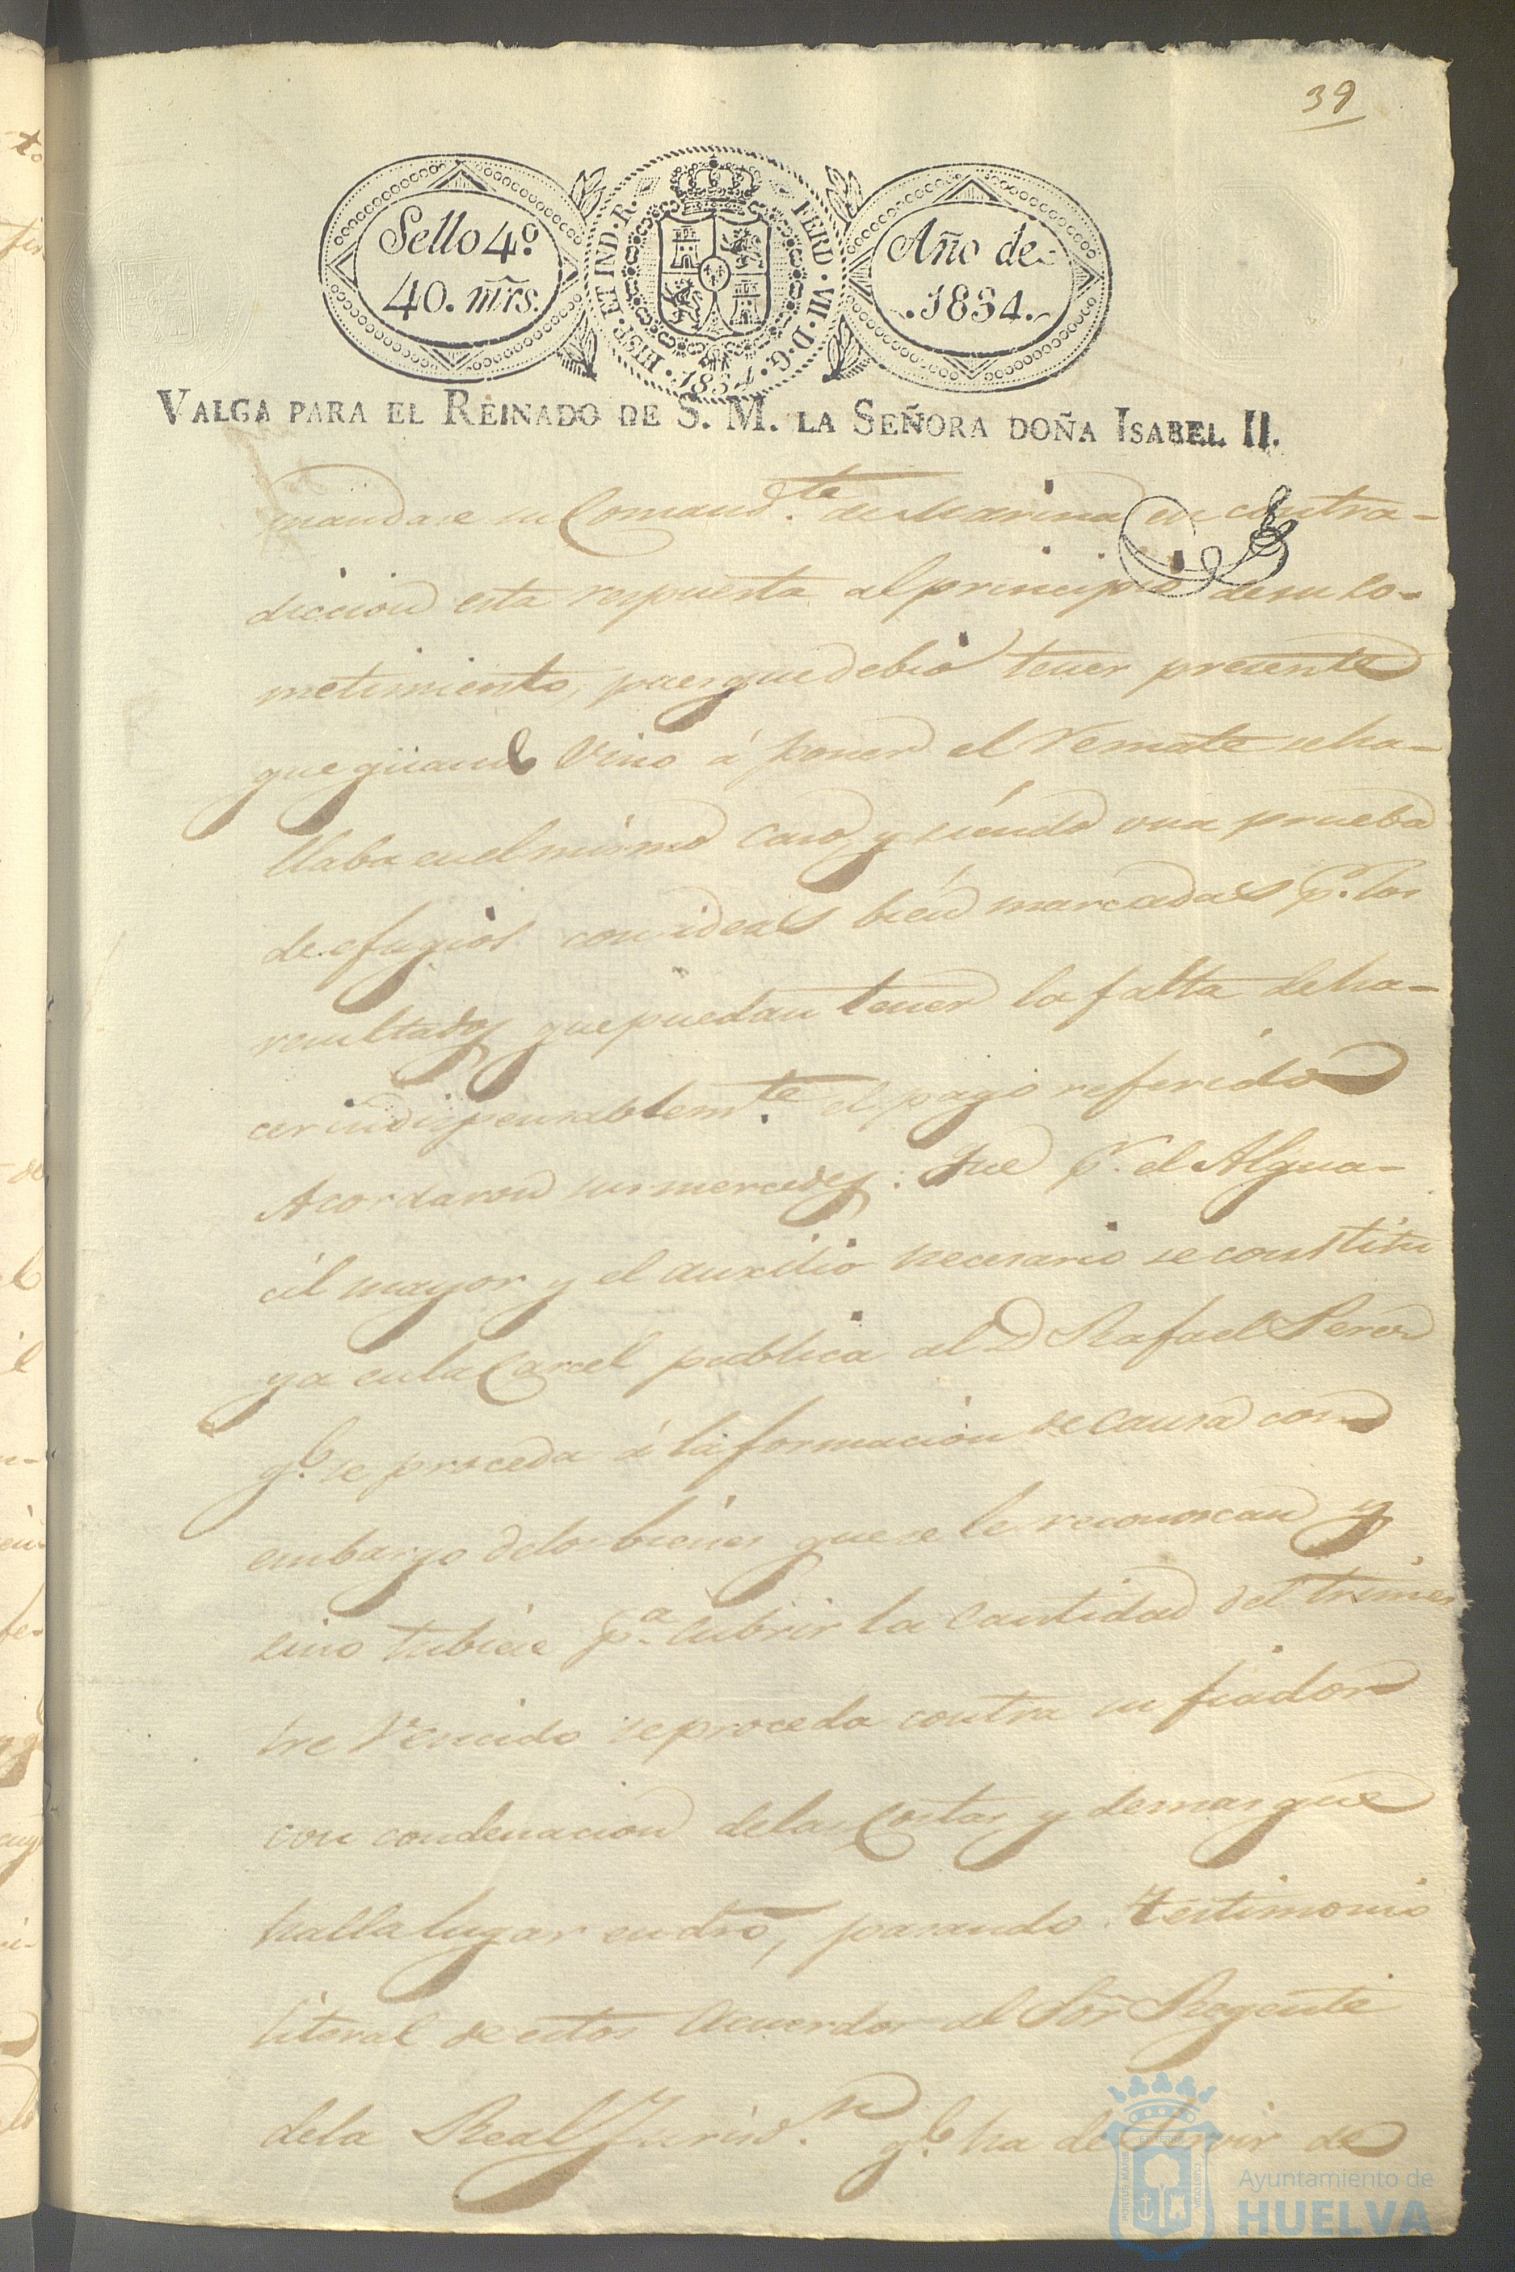 39
Sello 4º
40. mrs.
HISP. ET IND. R. FERD. VII. D. G. 1834.
Año de
.1834.
VALGA PARA EL REINADO DE S. M. LA SEÑORA DOÑA ISABEL II.
mandase su Comand.te de Marina en contra-
diccion esta respuesta al principio de su co-
metimiento, pues que debió tener presente
que quando vino á poner el remate se ha-
llaba en el mismo caso, y siendo una prueba
de efugios con ideas bien marcadas p.r los
resultados que puedan tener la falta de ha-
cer indispensablem.te el pago referido
Acordaron sus mercedes: Que p.r el Algua-
cil mayor y el auxilio necesario se constitu
ya en la Carcel publica al D Rafael Perez
q.e se proceda á la formacion de causa con
embargo de los bienes que se le reconoscan y
sino tubiese p.a cubrir la cantidad del trimes
tre Vencido se proceda contra su fiador
con condenacion de las Costas y demas que
halla lugar en dro, pasando testimonio
literal de estos acuerdos al Sor Regente
dela Real Jurisd.n q.e ha de servir de
Ayuntamiento de
HUELVA